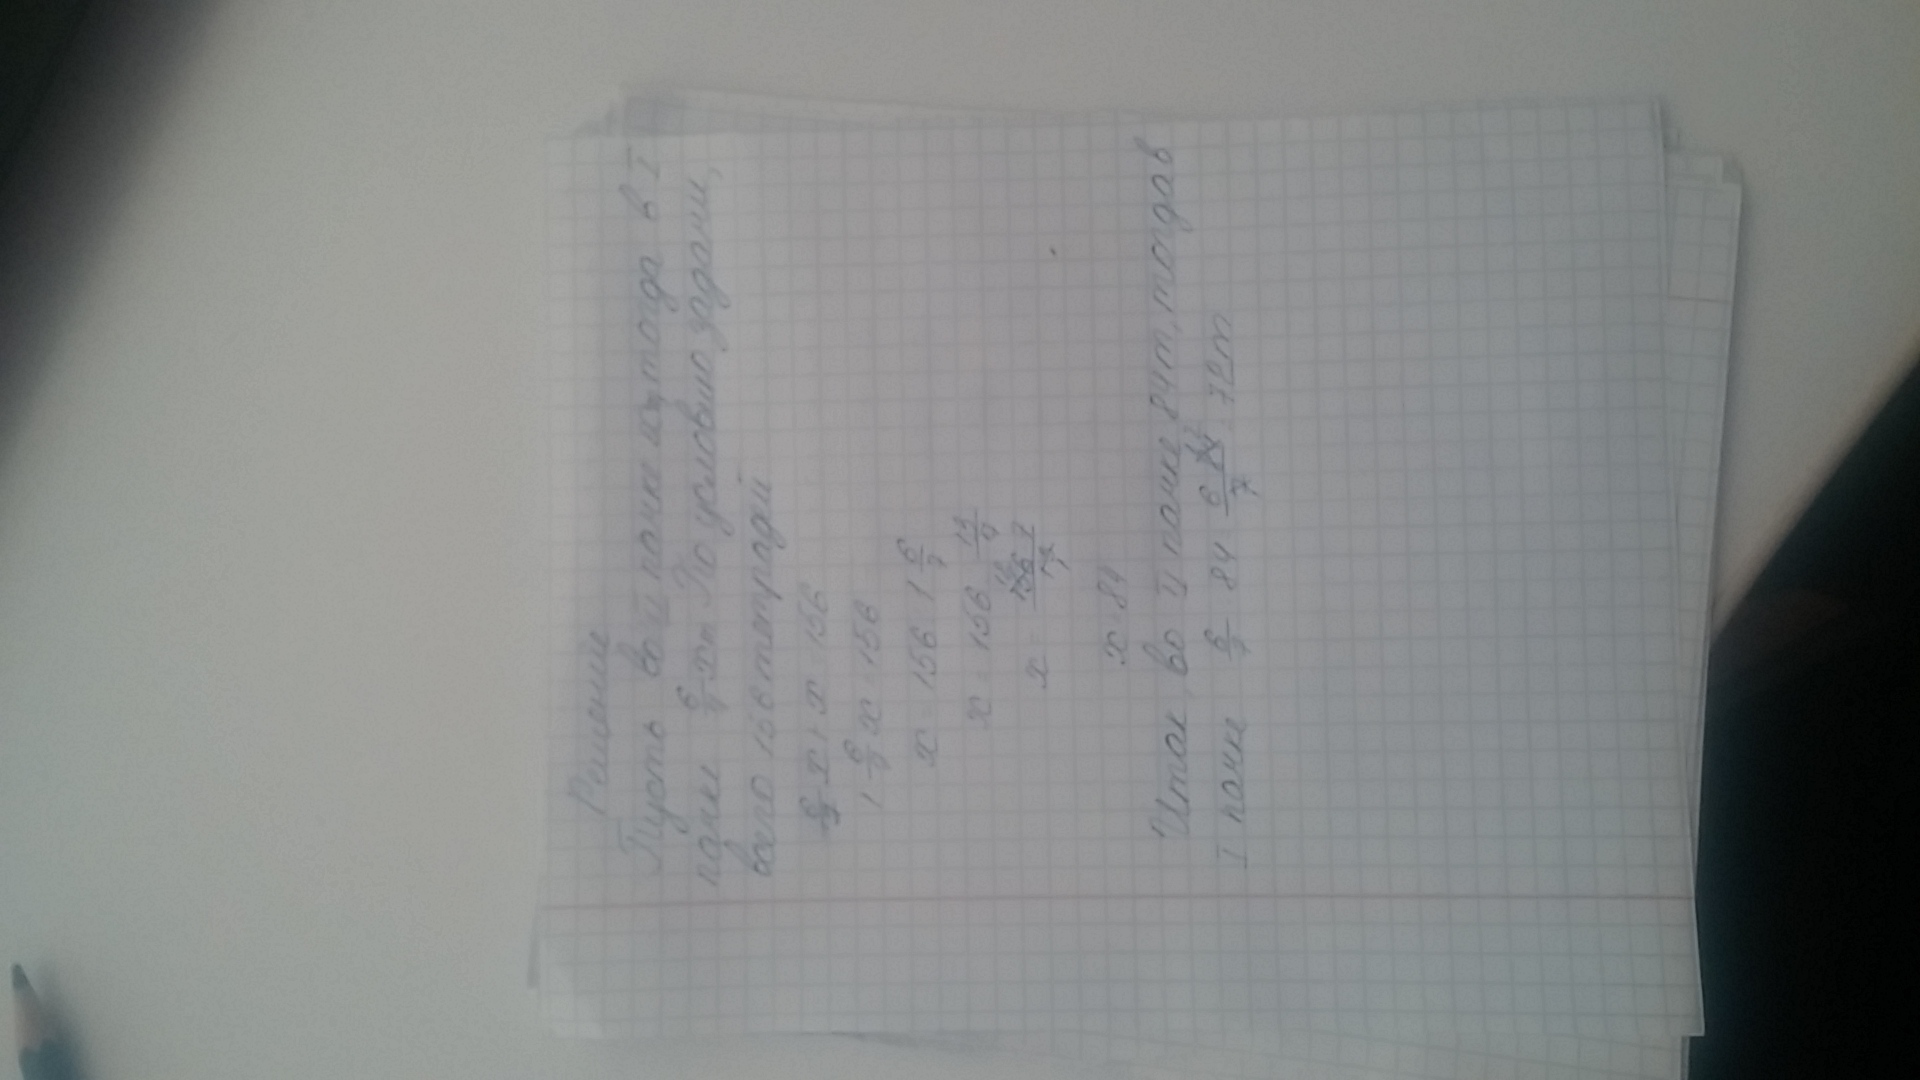 Решение
Пусть во II пачке x т, тогда в I
пачке 6/7 x т По условию задачи,
всего 156 тетрадей
6/7 x + x = 156
1 6/7 x = 156
x = 156 : 1 6/7
x = 156 : 13/7
x = 156 · 7 / 13
x = 84
Итак, во II пачке 84 т, тогда в
I пачке 6/7 · 84 = 6 · 84 / 7 = 72 т